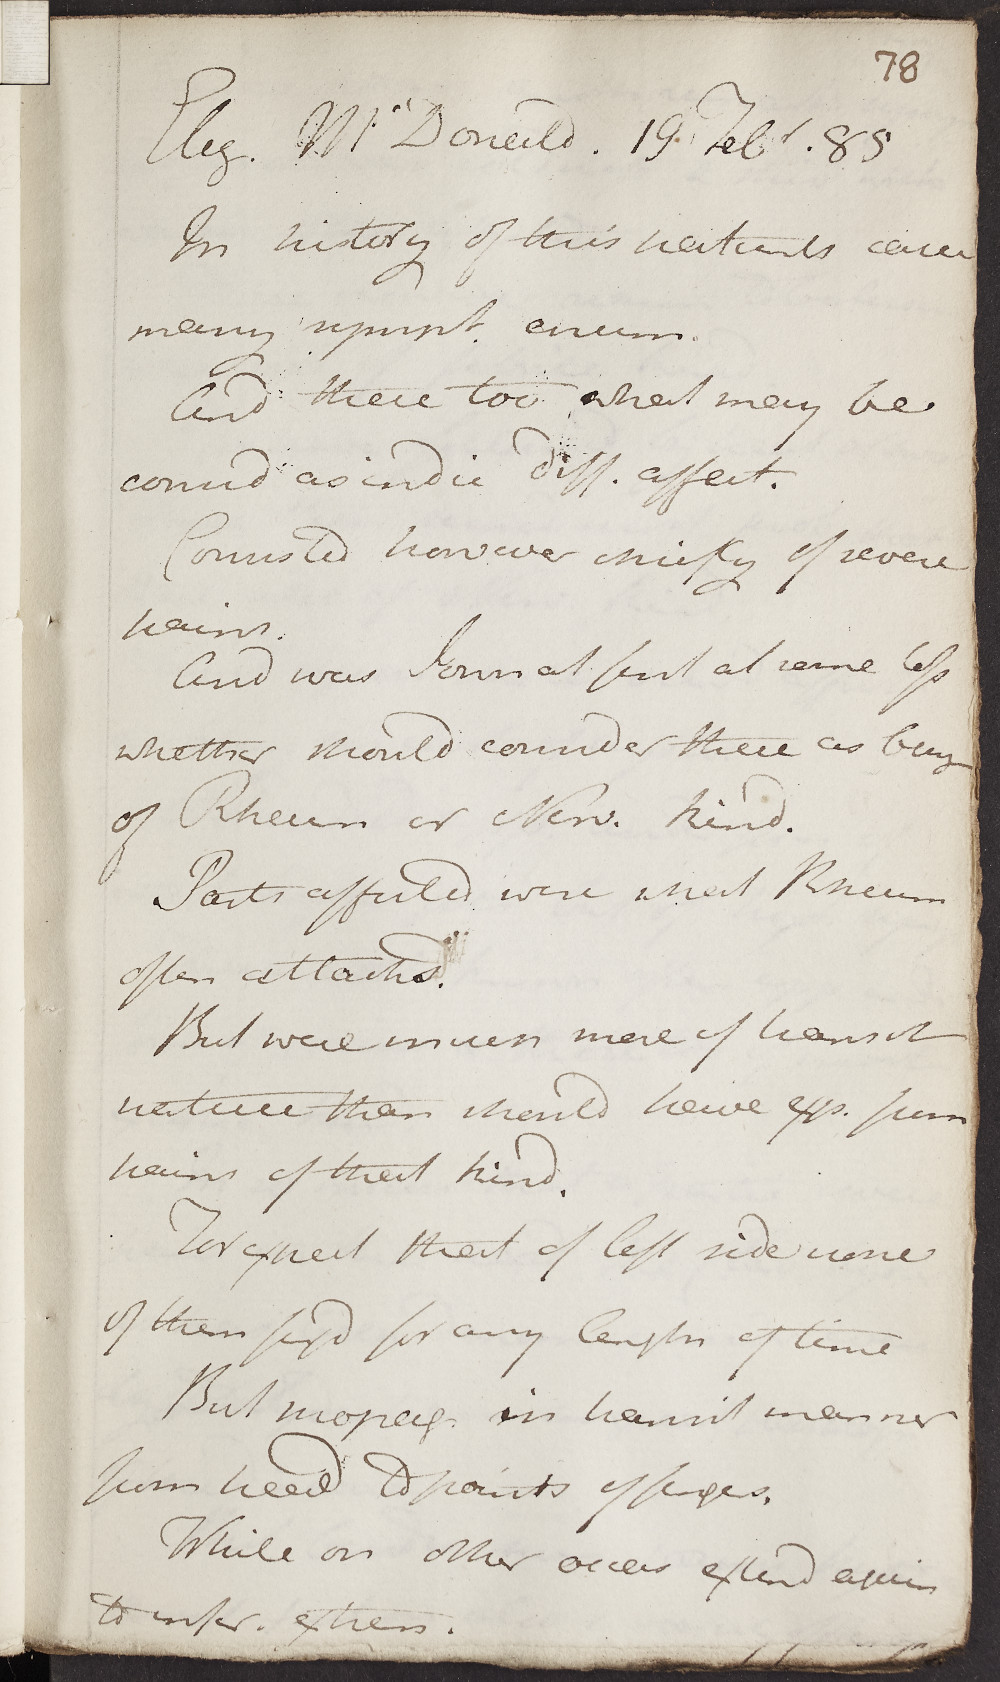 78
Eliz. McDonald. 19 Febr. 85
In history of this patients case
many sympt. occurr.
And these too what may be
consid as indic diff. affect.
Consisted however chiefly of severe
pains.
And was I own at first at some loss
whether should consider these as being
of Rheum or Nerv. kind.
Parts affected were what Rheum
often attacks.
But were much more of transit
nature than should have exp. from
pains of that kind.
For except that of left side none
of them fixd for any length of time
But propag. in transit manner
from head to points of fingers.
While on other occas extend again
to infer. extrem.